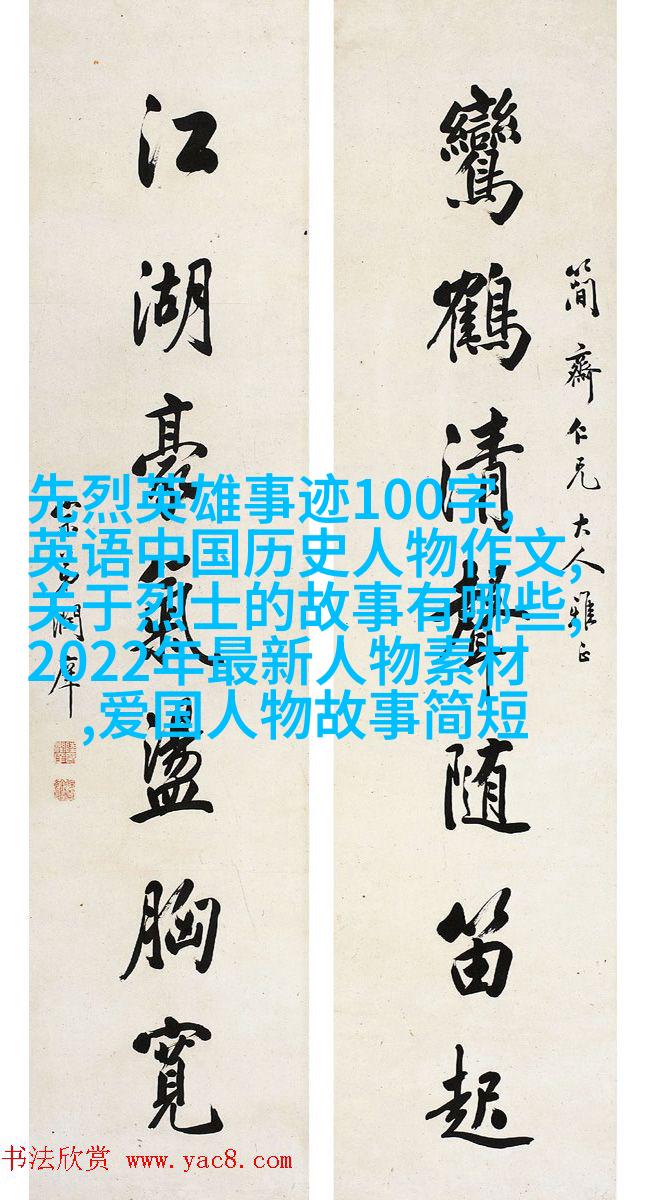 簡齋仁兄大人雅正
鸞鶴清聲随笛起
江湖豪氣盪胸寬
潤庠
先烈英雄事迹100字,
英语中国历史人物作文,
关于烈士的故事有哪些,
2022年最新人物素材
,爱国人物故事简短
书法欣赏 www.yac8.com